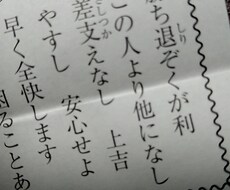 しり
ち退ぞくが利
この人より他になし
しつか
差支えなし　上吉
やすし　安心せよ
早く全快します
ることあ